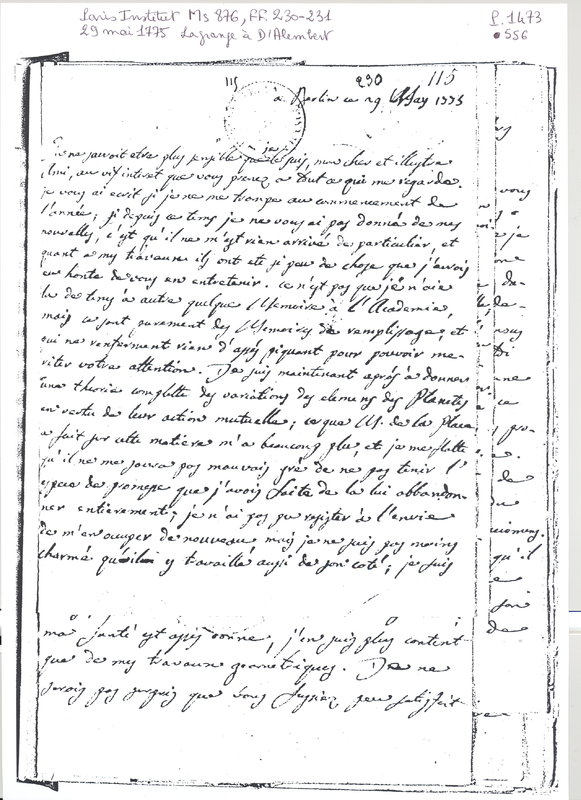 Paris Institut Ms 876, FF. 230-231
29 mai 1775 Lagrange à D'Alembert
P. 1473
• 556
115
230
115
à Berlin ce 29 May 1775
Je ne saurois etre plus sensible que je le suis, mon cher et illustre
Ami, au vif interet que vous prenez a tout ce qui me regarde.
je vous ai ecrit si je ne me trompe au commencement de
l'année; si depuis ce tems je ne vous ai pas donné de mes
nouvelles, c'est qu'il ne m'est rien arrivé de particulier, et
quant a mes travaux ils ont eté si peu de chose que j'aurois
eu honte de vous en entretenir. ce n'est pas que je n'aie
lu de tems a autre quelque Memoire à l'Academie,
mais ce sont purement des Memoires de remplissage, et
qui ne renferment rien d'assés piquant pour pouvoir me-
riter votre attention. Je suis maintenant après à donner
une theorie complette des variations des elemens des Planetes
en vertu de leur action mutuelle; ce que M. de la Place
a fait sur cette matiere m'a beaucoup plu, et je me flatte
qu'il ne me saura pas mauvais gré de ne pas tenir l'
espece de promesse que j'avois faite de la lui abbandon-
ner entierement; je n'ai pas pu resister à l'envie
de m'en occuper de nouveau mais je ne suis pas moins
charmé qu'il y travaille aussi de son coté; je suis
ma santé est assés bonne, j'en suis plus content
que de mes travaux geometriques. Je ne
serois pas surpris que vous fussiez peu satisfait
vous
je
de
nous
ne
ce
de
qu'il
son
de